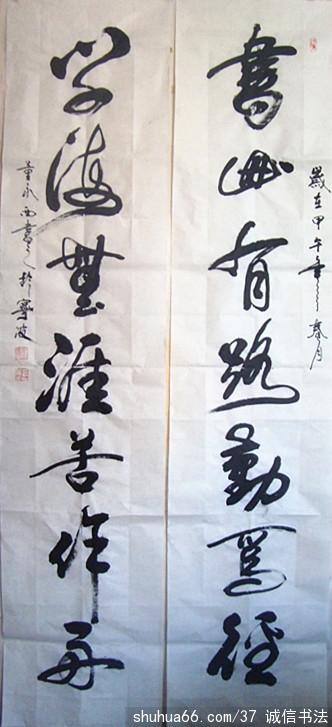 歲在甲午年春月
書山有路勤為徑
學海無涯苦作舟
董永西書於寧波
shuhua66.com/37 诚信书法